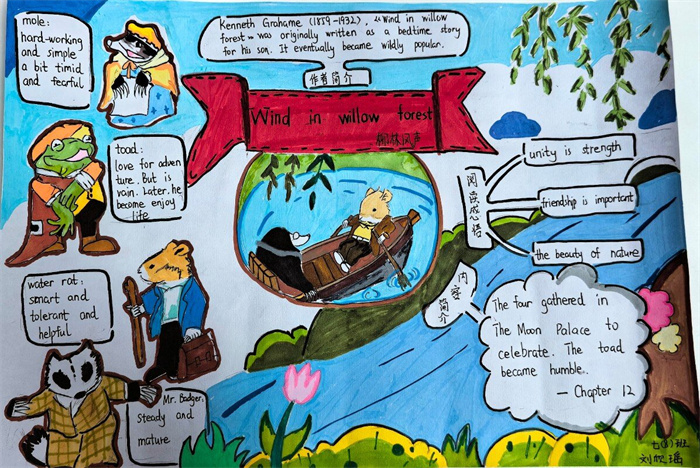 mole:
hard-working
and simple
a bit timid
and fearful
Kenneth Grahame (1859-1932), 《Wind in willow
forest》 was originally written as a bedtime story
for his son. It eventually became wildly popular.
作者简介
Wind in willow forest
柳林风声
toad:
love for adven
ture. But is
vain. Later, he
become enjoy
life
water rat:
smart and
tolerant and
helpful
Mr. Badger:
Steady and
mature
阅读感悟
unity is strength
friendship is important
the beauty of nature
内容
简介
The four gathered in
The Moon Palace to
celebrate. The toad
became humble.
— Chapter 12
班